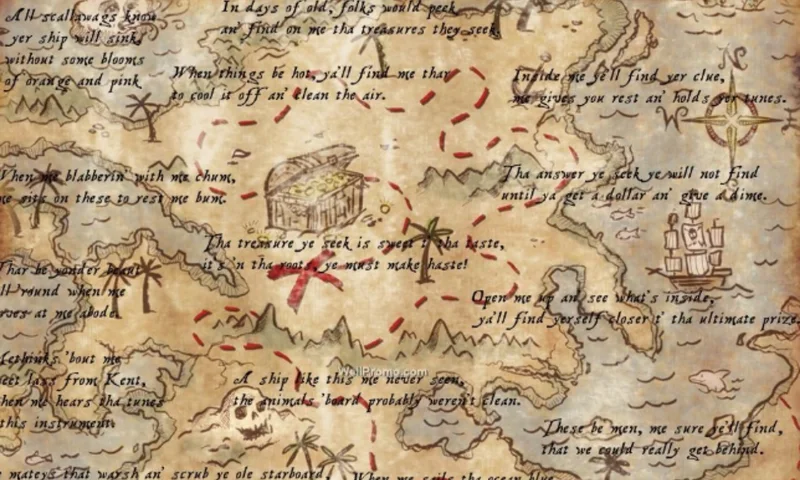 All scallawags know
yer ship will sink
without some blooms
of orange and pink
In days of old, folks would peek
an' find on me tha treasures they seek.
When things be hot, ya'll find me thar
to cool it off an' clean the air.
Inside me ye'll find yer clue,
me gives you rest an' holds yer tunes.
When me blabberin' with me chum,
me sits on these to rest me bum.
Tha answer ye seek ye will not find
until ya get a dollar an' give a dime.
Tha treasure ye seek is sweet t' tha taste,
it's 'n tha roots, ye must make haste!
Thar be yonder
all 'round when me
at me abode
Open me up an' see what's inside,
ya'll find yerself closer t' tha ultimate prize.
Methinks 'bout me
sweet lass from Kent,
when me hears tha tunes
this instrument.
A ship like this me never seen,
the animals 'board probably weren't clean.
WallPromo.com
These be men, me sure ye'll find,
that we could really get behind.
mateys that warsh an' scrub ye ole starboard,
When me sails tha ocean blue
N
W